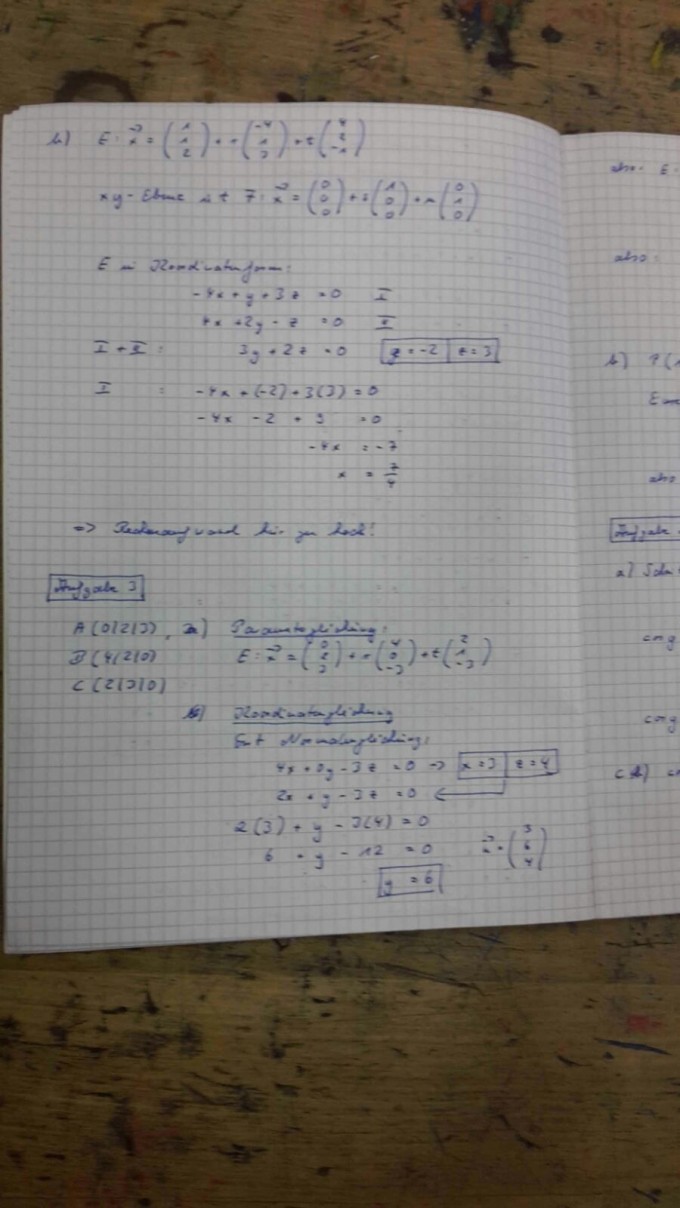 b) E: x⃗ = (1 1 2) + r (-4 1 3) + t (4 2 -1)
xy-Ebene ist F: x⃗ = (0 0 0) + s (1 0 0) + u (0 1 0)
E in Koordinatenform:
-4x + y + 3z = 0 I
4x + 2y - z = 0 II
I + II: 3y + 2z = 0 y = -2 z = 3
I : -4x + (-2) + 3(3) = 0
-4x - 2 + 9 = 0
-4x = -7
x = 7/4
=> hir zu hoch!
Aufgabe 3
A (0|2|3), a) Parametergleichung:
B (4|2|0) E: x⃗ = (0 2 3) + r (4 0 -3) + t (2 1 -3)
C (2|3|0)
b) Koordinatengleichung
Erst Normalengleichung:
4x + 0y - 3z = 0 -> x = 3 z = 4
2x + y - 3z = 0
2(3) + y - 3(4) = 0
6 + y - 12 = 0 n⃗ = (3 6 4)
y = 6
also: E:
also:
b) P(1
also
Aufgabe
a)